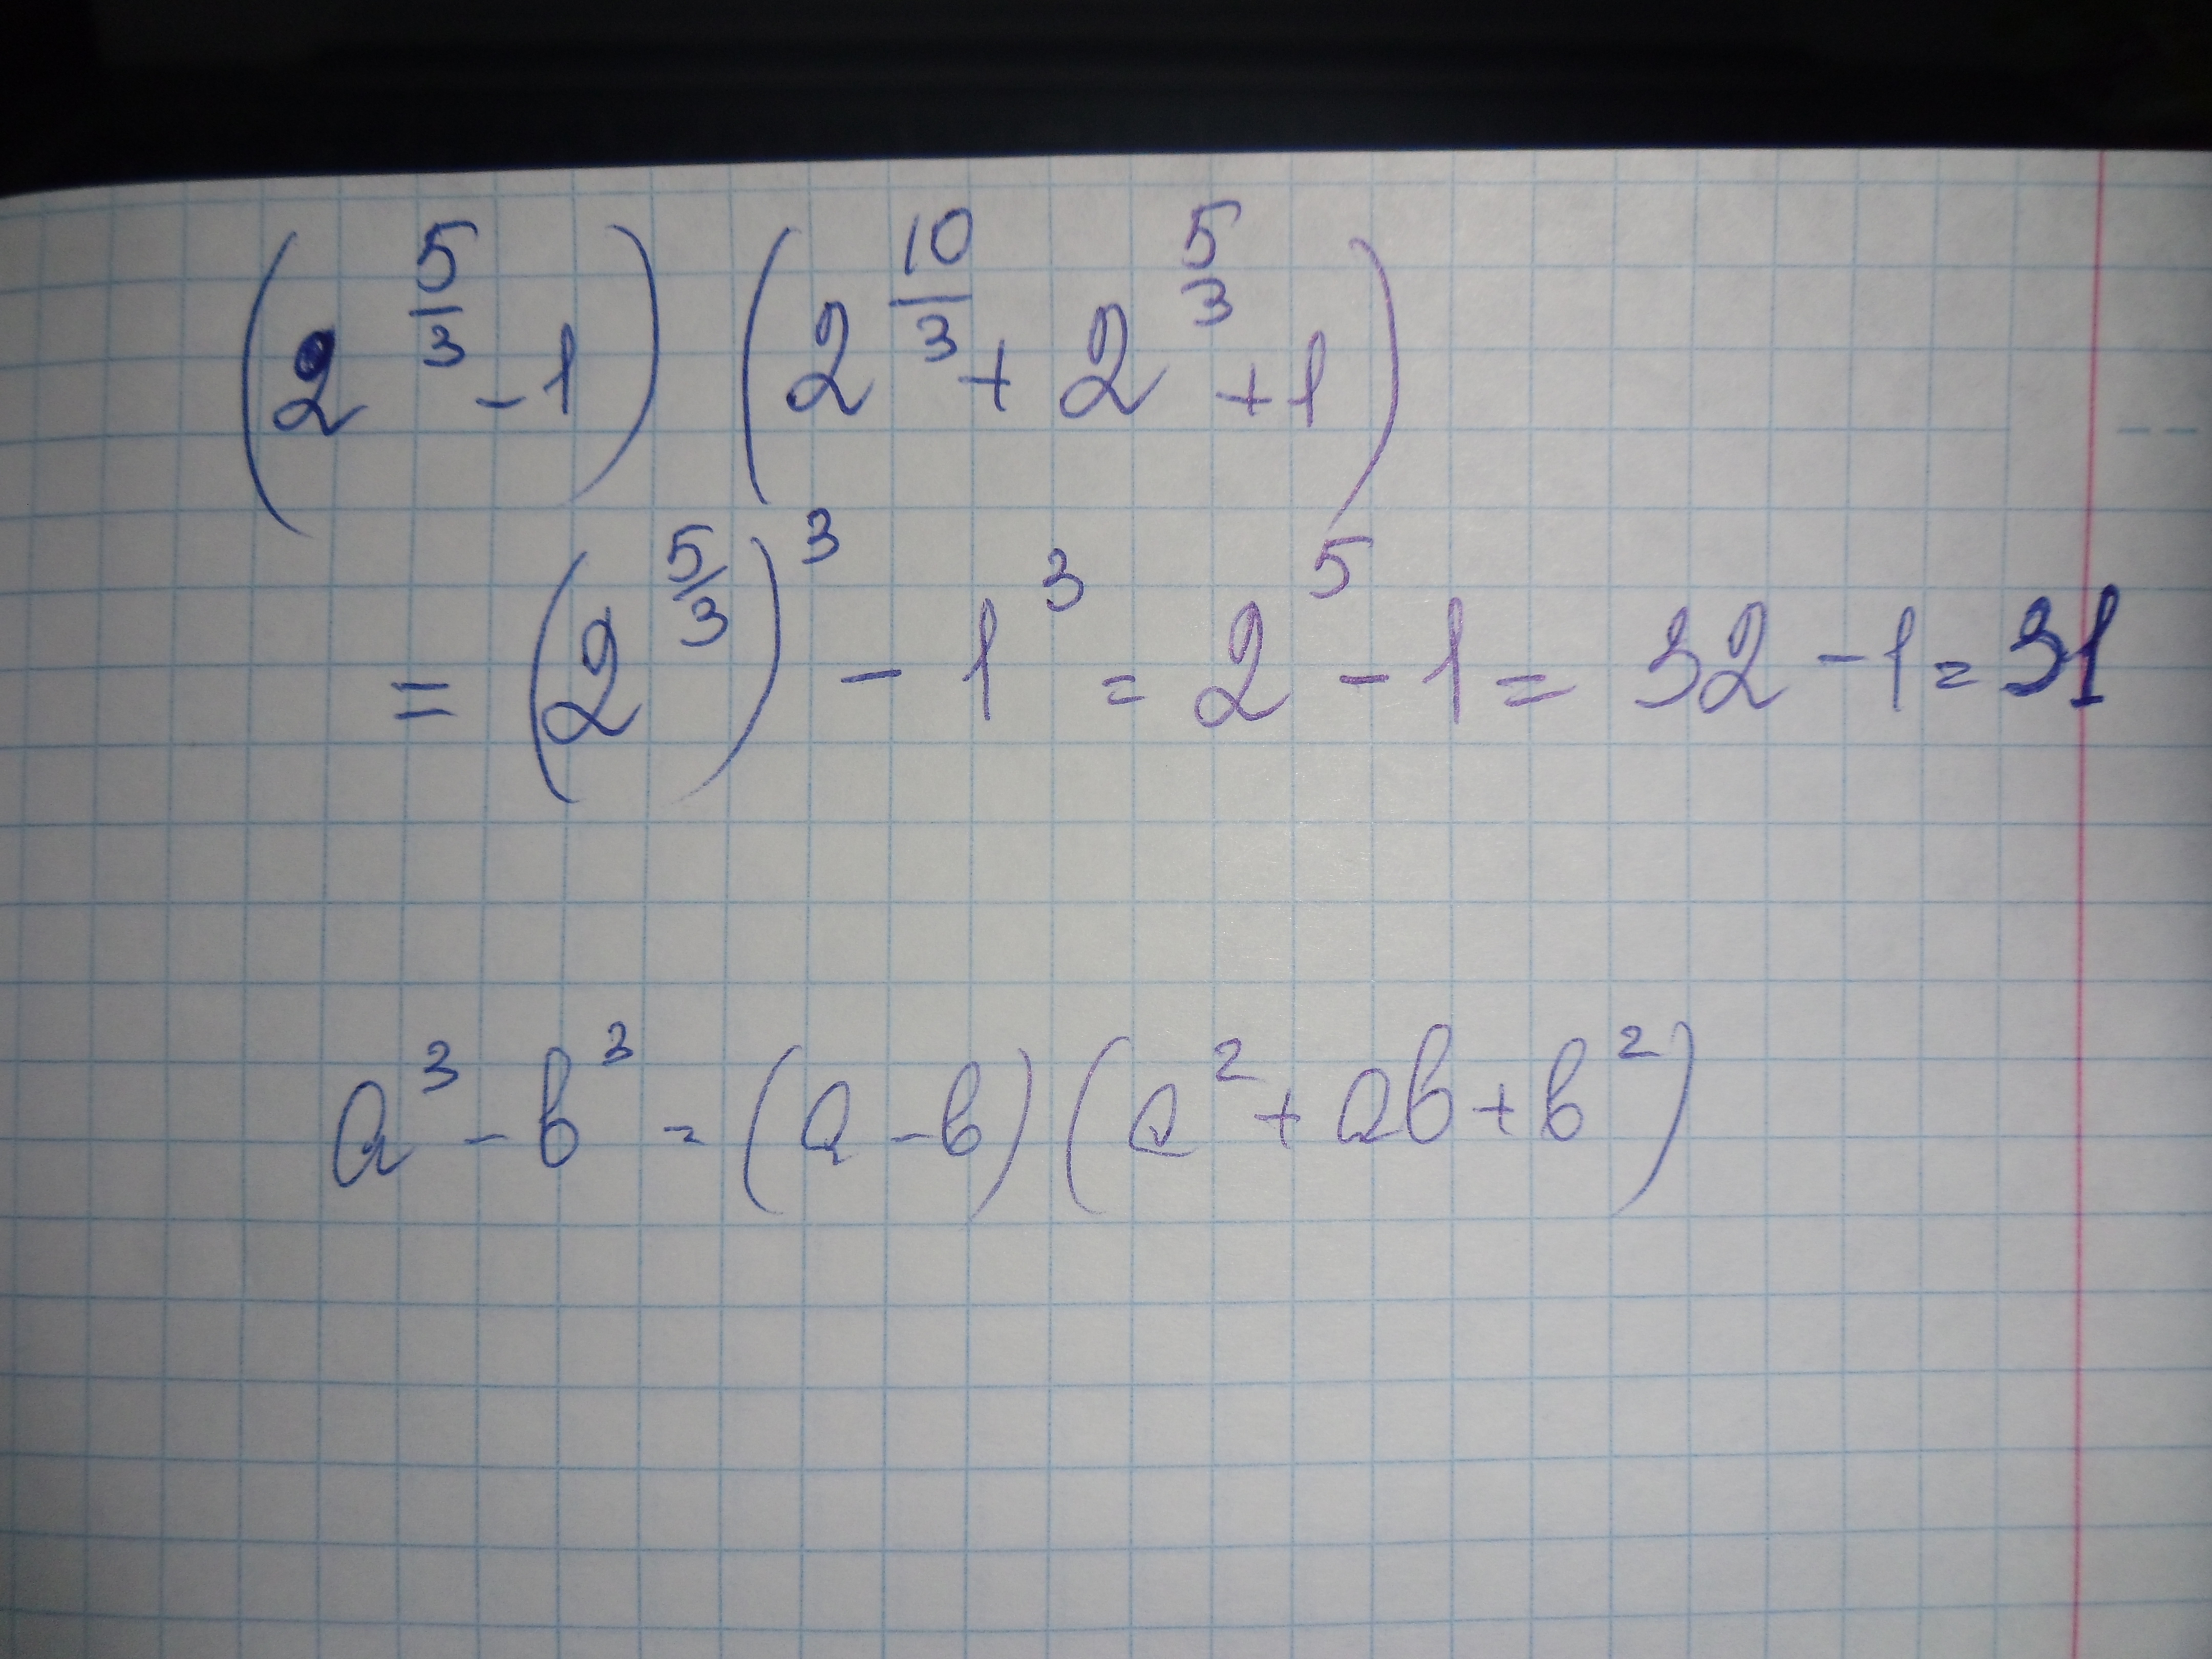 (2^{5/3} - 1) (2^{10/3} + 2^{5/3} + 1)
= (2^{5/3})^3 - 1^3 = 2^5 - 1 = 32 - 1 = 31
a^3 - b^3 = (a - b) (a^2 + ab + b^2)